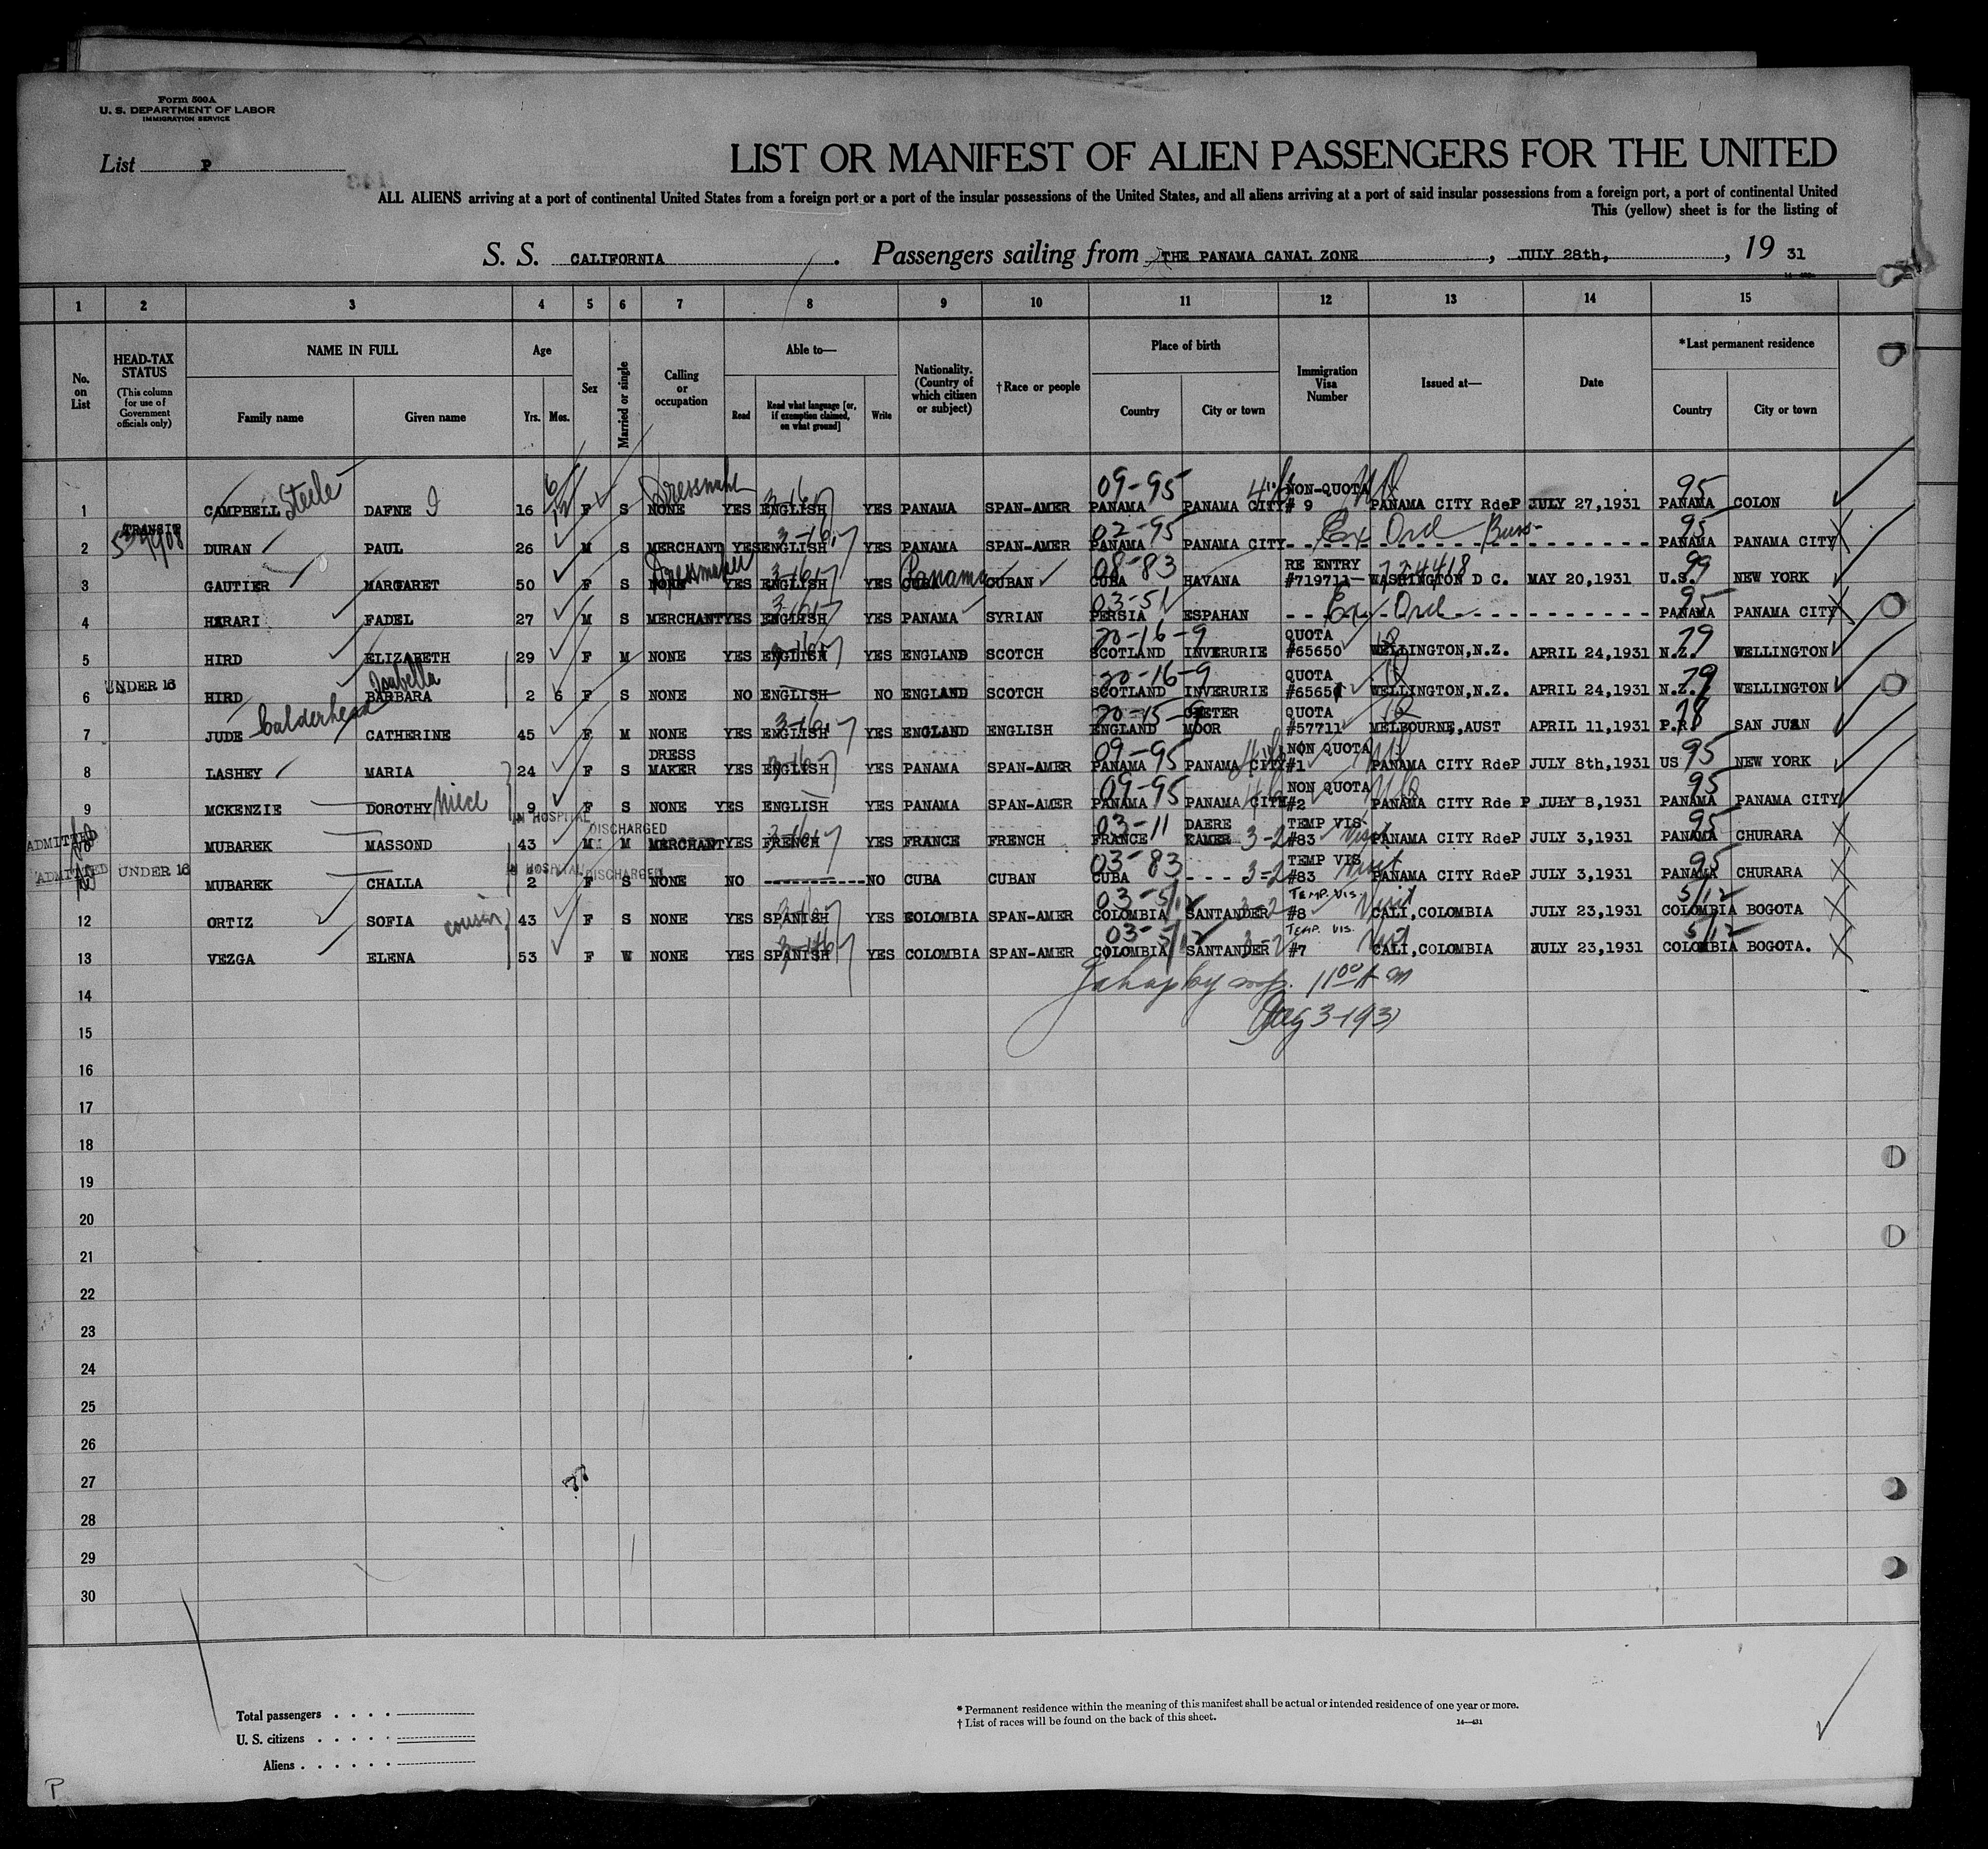 Form 500A
U. S. DEPARTMENT OF LABOR
IMMIGRATION SERVICE
List P
LIST OR MANIFEST OF ALIEN PASSENGERS FOR THE UNITED
ALL ALIENS arriving at a port of continental United States from a foreign port or a port of the insular possessions of the United States, and all aliens arriving at a port of said insular possessions from a foreign port, a port of continental United
This (yellow) sheet is for the listing of
S. S. CALIFORNIA. Passengers sailing from THE PANAMA CANAL ZONE, JULY 28th, , 19 31
1 2 3 4 5 6 7 8 9 10 11 12 13 14 15
No. on List
HEAD-TAX STATUS (This column for use of Government officials only)
NAME IN FULL
Family name Given name
Age
Yrs. Mos.
Sex
Married or single
Calling or occupation
Able to—
Read Read what language [or, if exemption claimed, on what ground] Write
Nationality. (Country of which citizen or subject)
†Race or people
Place of birth
Country City or town
Immigration Visa Number
Issued at—
Date
*Last permanent residence
Country City or town
Steele I 6/12 Dressmaker 3-16-17 09-95 NON-QUOTA 95
1 CAMPBELL DAFNE 16 F S NONE YES ENGLISH YES PANAMA SPAN-AMER PANAMA PANAMA CITY # 9 PANAMA CITY RdeP JULY 27,1931 PANAMA COLON
TRANSIT 02-95 Ex Ord Buss- 95
2 DURAN PAUL 26 M S MERCHANT YES ENGLISH YES PANAMA SPAN-AMER PANAMA PANAMA CITY PANAMA PANAMA CITY
Dressmaker Panama 08-83 RE ENTRY 724418 99
3 GAUTIER MARGARET 50 F S NONE YES ENGLISH YES CUBA CUBAN CUBA HAVANA #719711 WASHINGTON D C. MAY 20,1931 U.S. NEW YORK
03-51 Ex Ord 95
4 HARARI FADEL 27 M S MERCHANT YES ENGLISH YES PANAMA SYRIAN PERSIA ESPAHAN PANAMA PANAMA CITY
20-16-9 QUOTA 79
5 HIRD ELIZABETH 29 F M NONE YES ENGLISH YES ENGLAND SCOTCH SCOTLAND INVERURIE #65650 WELLINGTON,N.Z. APRIL 24,1931 N.Z. WELLINGTON
UNDER 16 Isabella 20-16-9 QUOTA 79
6 HIRD BARBARA 2 6 F S NONE NO ENGLISH NO ENGLAND SCOTCH SCOTLAND INVERURIE #65651 WELLINGTON,N.Z. APRIL 24,1931 N.Z. WELLINGTON
Calderhead QUOTA
7 JUDE CATHERINE 45 F M NONE YES ENGLISH YES ENGLAND ENGLISH ENGLAND MOOR #57711 MELBOURNE,AUST APRIL 11,1931 P.R. SAN JUAN
DRESS 09-95 NON QUOTA 95
8 LASHEY MARIA 24 F S MAKER YES ENGLISH YES PANAMA SPAN-AMER PANAMA PANAMA CITY #1 PANAMA CITY RdeP JULY 8th,1931 US NEW YORK
niece 09-95 NON QUOTA 95
9 MCKENZIE DOROTHY 9 F S NONE YES ENGLISH YES PANAMA SPAN-AMER PANAMA PANAMA CITY #2 PANAMA CITY Rde P JULY 8,1931 PANAMA PANAMA CITY
ADMITTED IN HOSPITAL DISCHARGED 03-11 DAERE TEMP VIS 95
MUBAREK MASSOND 43 M M MERCHANT YES FRENCH YES FRANCE FRENCH FRANCE KAMER 3-2 #83 Visit PANAMA CITY RdeP JULY 3,1931 PANAMA CHURARA
ADMITTED UNDER 16 IN HOSPITAL DISCHARGED 03-83 TEMP VIS 95
MUBAREK CHALLA 2 F S NONE NO NO CUBA CUBAN CUBA 3-2 #83 Visit PANAMA CITY RdeP JULY 3,1931 PANAMA CHURARA
cousin 03-5/12 TEMP. VIS. Visit 5/12
12 ORTIZ SOFIA 43 F S NONE YES SPANISH YES COLOMBIA SPAN-AMER COLOMBIA SANTANDER 3-2 #8 CALI,COLOMBIA JULY 23,1931 COLOMBIA BOGOTA
03-5/12 TEMP. VIS. Visit 5/12
13 VEZGA ELENA 53 F W NONE YES SPANISH YES COLOMBIA SPAN-AMER COLOMBIA SANTANDER 3-2 #7 CALI,COLOMBIA JULY 23,1931 COLOMBIA BOGOTA.
14 by 11 00 A m
15 Aug 3-1931
16
17
18
19
20
21
22
23
24
25
26
27
28
29
30
Total passengers
U. S. citizens
Aliens
* Permanent residence within the meaning of this manifest shall be actual or intended residence of one year or more.
† List of races will be found on the back of this sheet.
14—431
P